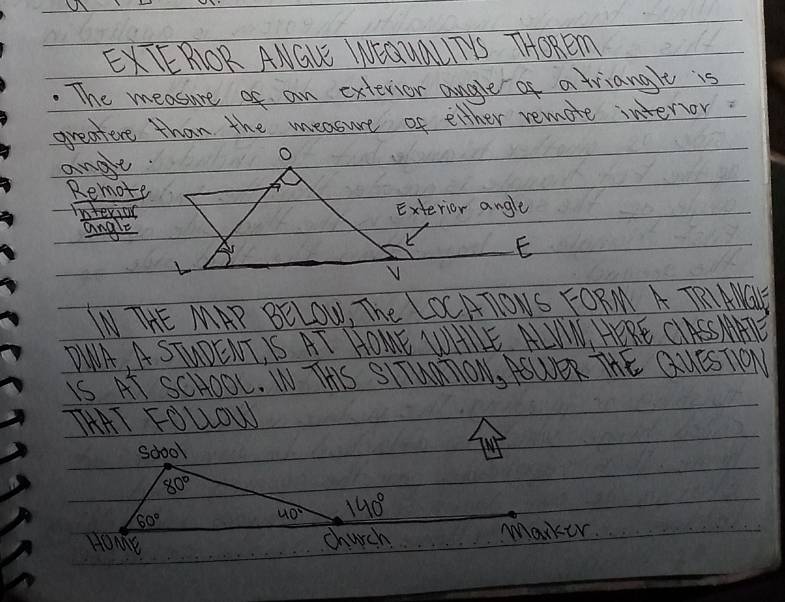 EXTERIOR ANGLE INEQUALITYS THOREM
• The measure of an exterior angle of a triangle is
greatere than the measure of either remote interior
angle.
O
Remote
Interior
angle
Exterior angle
L
V
E
IN THE MAP BELOW, The LOCATIONS FORM A TRIANGLE
DWA, A STUDENT, IS AT HOME WHILE ALVIN, HERE CLASSMATE
IS AT SCHOOL. IN THIS SITUATION, ASWER THE QUESTION
THAT FOLLOW
N
Sdool
80°
60°
40°
140°
HOME
church
Marker